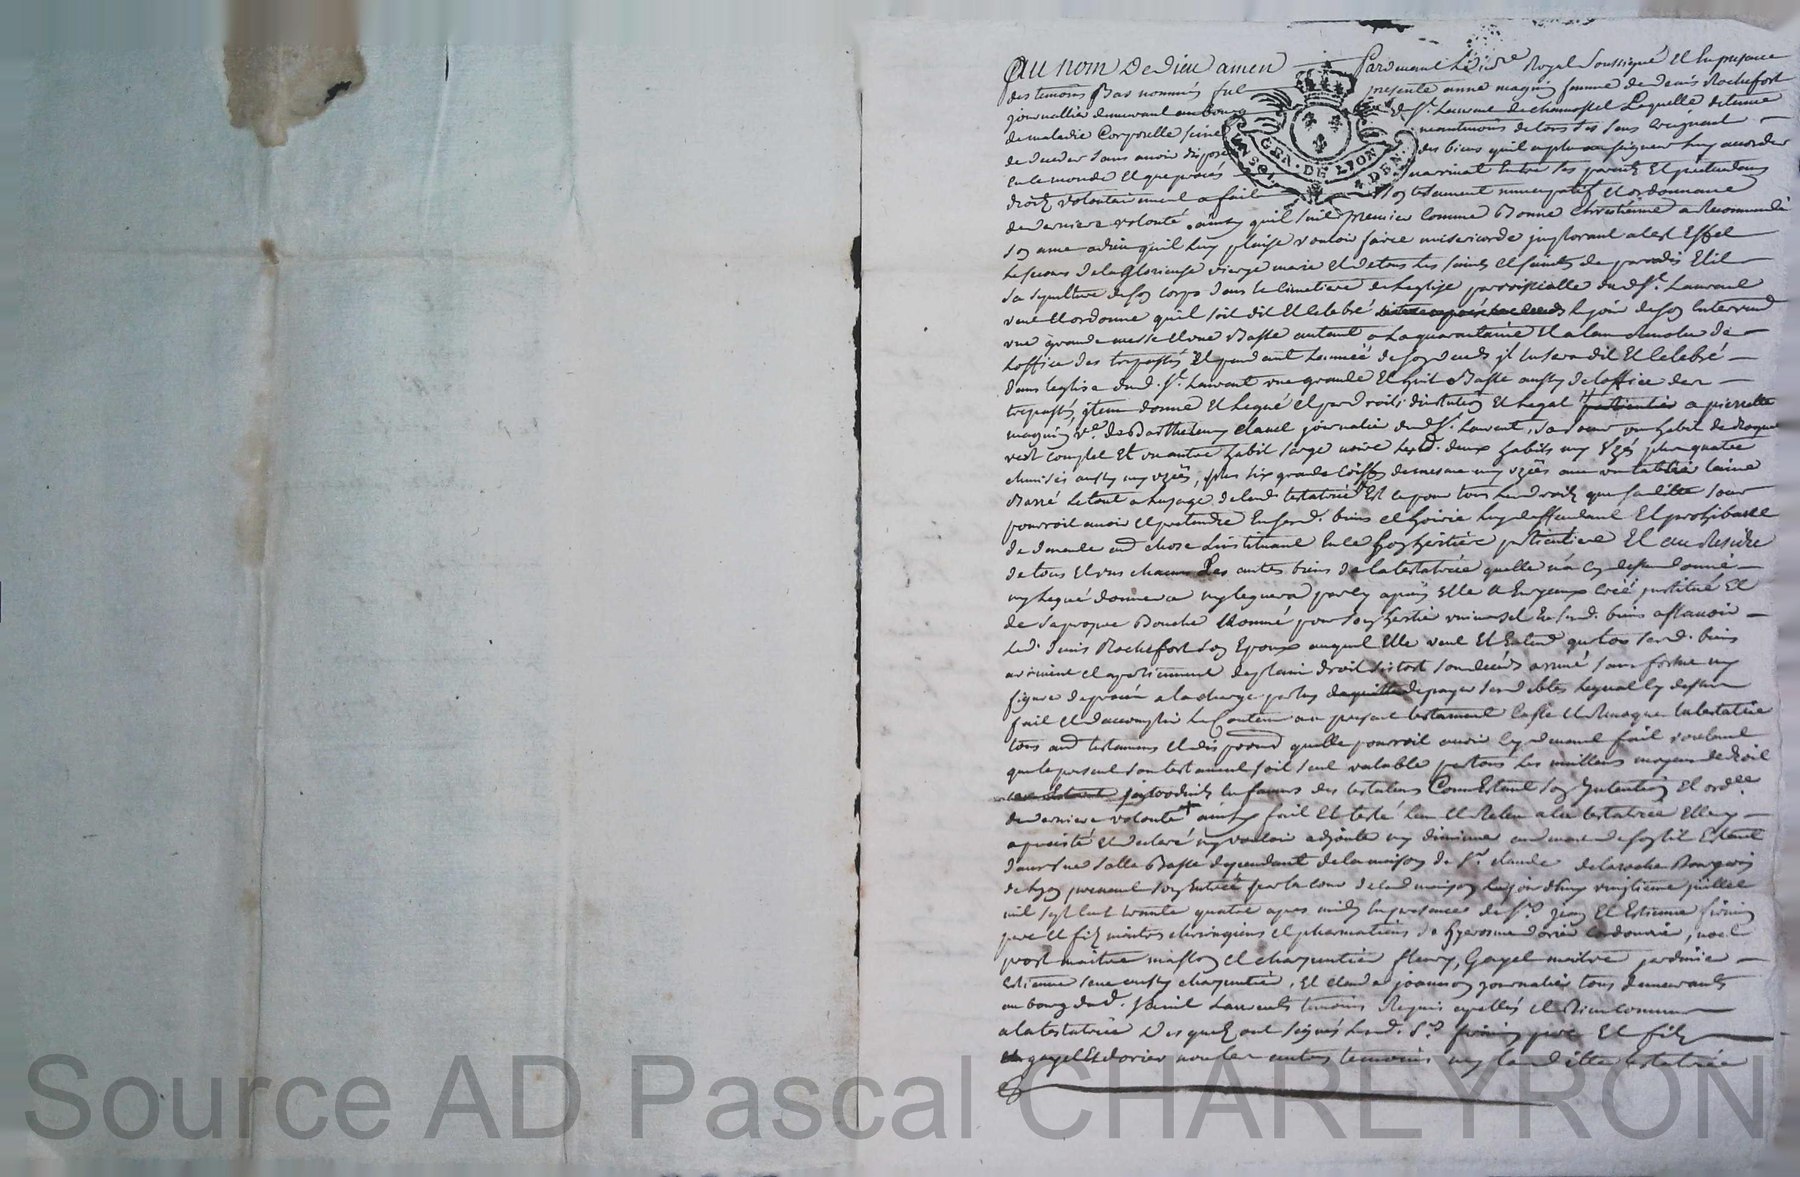 Au nom de dieu amen Pardevant le no.re Royal soussigné et En presence
des temoins Bas nommés fut presente anne magnin femme de denis Rochefort
journallier demeurant au bourg de St. Laurent de chamousset Laquelle detenue
de maladie Corporelle seine neantmoins de tous ses sens Craignant
de deceder sans avoir disposé des biens qu'il a plu au seigneur luy accorder
En le monde et que procès n'arrivat Entre ses parents Et pretendans
GEN. DE LYON
4 DEN.
droits volontairement a fait son testament nuncupatif et ordonnance
de derniere volonté ainsy quil suit premier Comme Bonne Chrestienne a Recommandé
son ame a dieu quil luy plaise vouloir faire misericorde implorant a cest Effet
le secours de la glorieuse vierge marie et de tous les saints et saintes de paradis Elit
sa sepulture de son corps dans le Cimetiere de leglise parroissialle dud. St. Laurent
veut et ordonne quil soit dit et Celebré le jour de son Enterrement
une grande messe et une Basse autant a la quarantaine Et a la
loffice des trepassés Et pendant lannée de son deceds il luy sera dit Et Celebré
dans leglise dud. St. Laurent une grande Et huit Basse aussy de loffice des
trepassés, item donne Et legue et par droit d'institution Et legat particulier a pierrette
magnin ve. de Barthelemy journalier dud St. Laurent, sa soeur un habit de drogue
vert complet Et un autre habit sarge noire lesd. deux habits my uzés plus quatre
chemises aussy my uzées, plus six grande coiffes de mesme my uzées avec un tablié laine
Barré le tout a lusage de lad. testatrice Et ce pour tous les droits que sa ditte soeur
pourroit avoir et pretendre En sesd. biens et hoirie luy deffendant Et prohibant
de demander autre chose linstituant En ce son heritiere particuliere Et au Residu
de tous Et uns chacuns Les autres biens de la testatrice quelle n'a cy dessus donné
ny legué donnera ny leguera par cy après Elle a Enjeux créé institué Et
de sa propre Bouche Nommé pour son heritier universel En sesd. biens assavoir
led. denis Rochefort son Epoux auquel Elle veut Et Entend que tous sesd. biens
arrivent et apartiennent de plain droit sitost son deceds arrivé sans forme ny
figure de procès a la charge par luy de payer ses debtes legats cy dessus
fait et d'accomplir le Contenu au present testament Casse Et Revoque la testatrice
tous autres testamens et dispositions quelle pourroit avoir cy devant fait voulant
que le present son testament soit seul valable par tous les meilleurs moyens de droit
introduits En faveur des testateurs Comm' Estant son Intention Et ord.ce
de derniere volonté + ainsy fait Et testé leu Et Releu a la testatrice Elle y
a persisté Et declaré ny vouloir adjouter ny diminuer au devant de son lit Estant
dans une salle Basse dependant de la maison de Sr. claude delaroche Bourgeois
de Lyon prenant son Entrée par la Cour de lad maison le jourdhuy vingtieme juillet
mil sept cent trente quatre apres midy En presence de Srs. jean Et Estienne
pere Et fils maitres chirurgiens et pharmatiens de hyerosme dorier cordonnier, noel
prost maitre masson et charpentier fleury Gayel maitre jardinier
Estienne aussy charpentier, Et claude joannon journalier tous demeurants
au bourg dud. saint Laurent temoins Requis apellés et Bien Connus
a la testatrice Desquels ont signés lesd. Srs pere Et fils
gayel Et dorier non les autres temoins ny lad itte testatrice
Source AD Pascal CHAREYRON